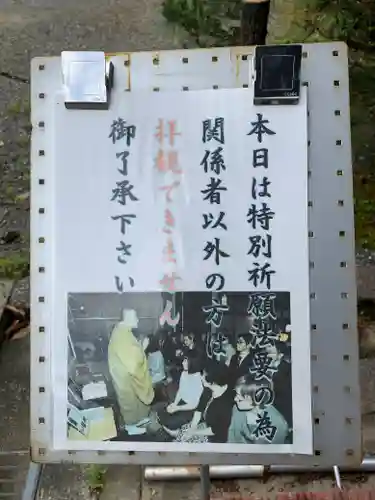 本日は特別祈願法要の為
関係者以外の方は
拝観できません
御了承下さい